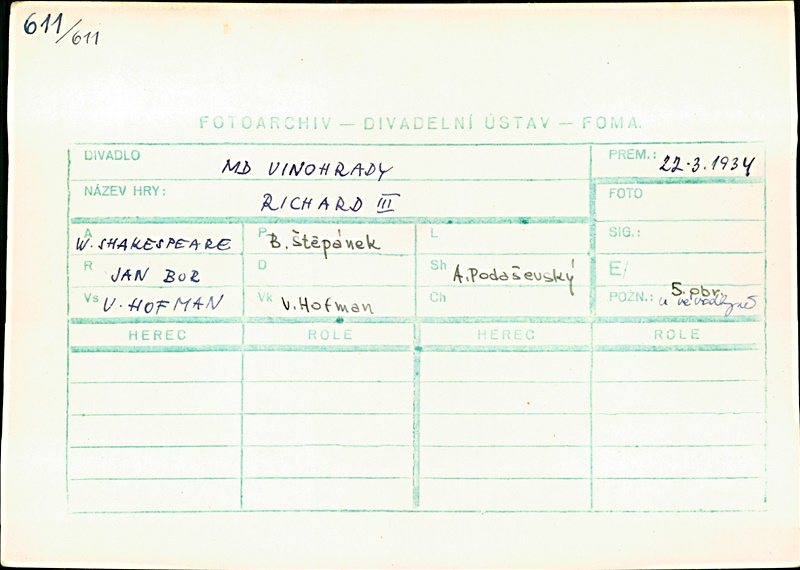 611/611
FOTOARCHIV — DIVADELNÍ ÚSTAV — FOMA.
DIVADLO MD VINOHRADY PREM.: 22.3.1934
NÁZEV HRY: RICHARD III FOTO
A W. SHAKESPEARE P B. Štěpánek L SIG.:
R JAN BOR D Sh A. Podaševský E/
Vs V. HOFMAN Vk V. Hofman Ch POZN.: 5. obr.
HEREC ROLE HEREC ROLE